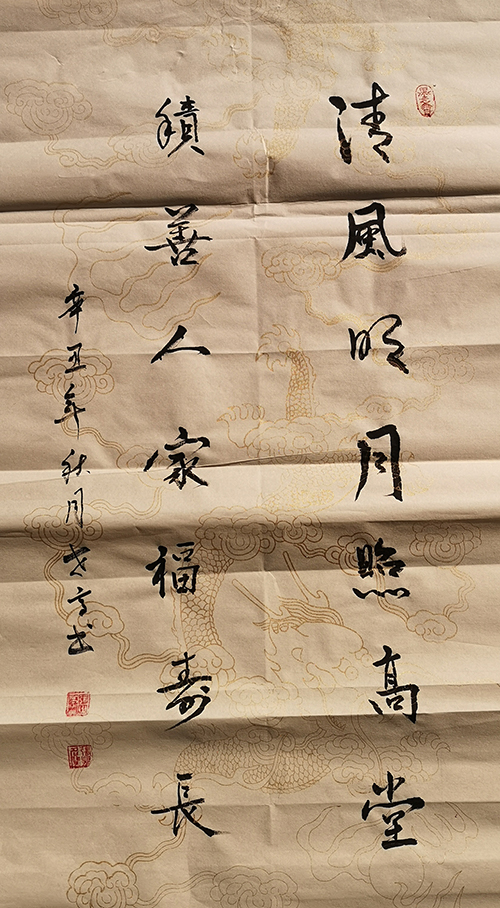 清風明月照高堂
積善人家福壽長
辛丑年秋月